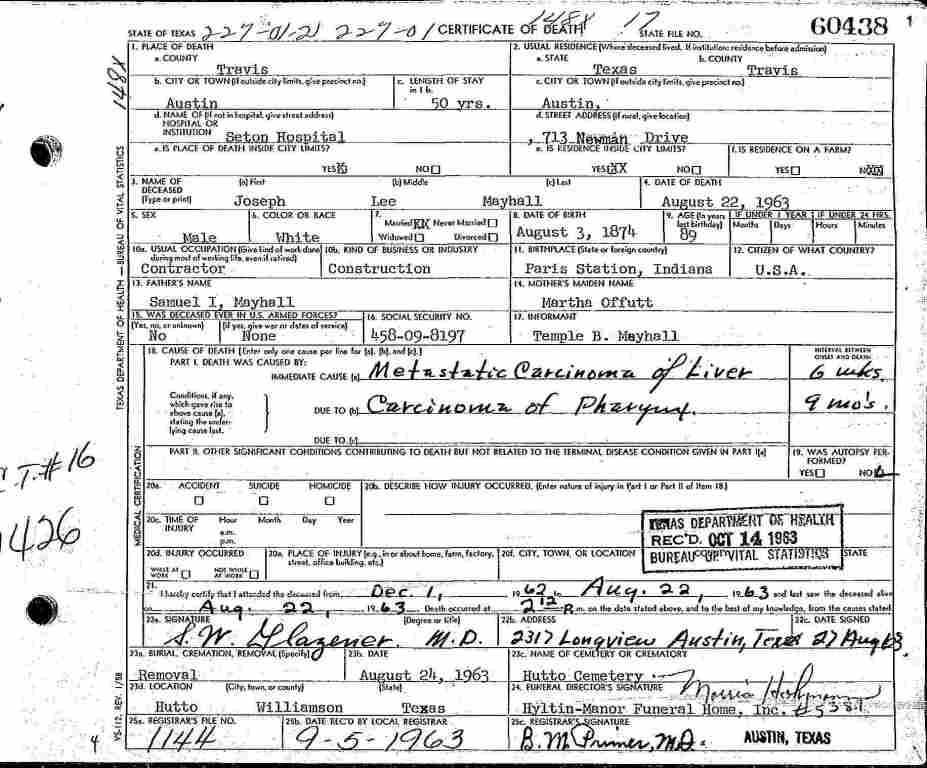 STATE OF TEXAS 227-01-21 227-01 CERTIFICATE OF DEATH 148X 17 STATE FILE NO. 60438 1
1. PLACE OF DEATH 2. USUAL RESIDENCE (Where deceased lived. If institution: residence before admission)
a. COUNTY a. STATE b. COUNTY
Travis Texas Travis
b. CITY OR TOWN (If outside city limits, give precinct no.) c. LENGTH OF STAY in 1 b. c. CITY OR TOWN (If outside city limits, give precinct no.)
Austin 50 yrs. Austin,
d. NAME OF (If not in hospital, give street address) HOSPITAL OR INSTITUTION d. STREET ADDRESS (If rural, give location)
Seton Hospital , 713 Newman Drive
e. IS PLACE OF DEATH INSIDE CITY LIMITS? e. IS RESIDENCE INSIDE CITY LIMITS? f. IS RESIDENCE ON A FARM?
YES X NO YES XX NO YES NO XX
3. NAME OF DECEASED (Type or print) (a) First (b) Middle (c) Last 4. DATE OF DEATH
Joseph Lee Mayhall August 22, 1963
5. SEX 6. COLOR OR RACE 7. Married XX Never Married Widowed Divorced 8. DATE OF BIRTH 9. AGE (In years last birthday) IF UNDER 1 YEAR Months Days IF UNDER 24 HRS. Hours Minutes
Male White August 3, 1874 89
10a. USUAL OCCUPATION (Give kind of work done during most of working life, even if retired) 10b. KIND OF BUSINESS OR INDUSTRY 11. BIRTHPLACE (State or foreign country) 12. CITIZEN OF WHAT COUNTRY?
Contractor Construction Paris Station, Indiana U.S.A.
13. FATHER'S NAME 14. MOTHER'S MAIDEN NAME
Samuel I, Mayhall Martha Offutt
15. WAS DECEASED EVER IN U.S. ARMED FORCES? 16. SOCIAL SECURITY NO. 17. INFORMANT
(Yes, no, or unknown) (If yes, give war or dates of service)
No None 458-09-8197 Temple B. Mayhall
18. CAUSE OF DEATH [Enter only one cause per line for (a), (b), and (c).] INTERVAL BETWEEN ONSET AND DEATH
PART I. DEATH WAS CAUSED BY:
IMMEDIATE CAUSE (a) Metastatic Carcinoma of Liver 6 wks.
Conditions, if any, which gave rise to above cause (a), stating the underlying cause last.
DUE TO (b) Carcinoma of Pharynx. 9 mo's.
DUE TO (c)
PART II. OTHER SIGNIFICANT CONDITIONS CONTRIBUTING TO DEATH BUT NOT RELATED TO THE TERMINAL DISEASE CONDITION GIVEN IN PART I(a) 19. WAS AUTOPSY PERFORMED?
YES NO
20a. ACCIDENT SUICIDE HOMICIDE 20b. DESCRIBE HOW INJURY OCCURRED. (Enter nature of injury in Part I or Part II of Item 18.)
20c. TIME OF INJURY Hour a.m. p.m. Month Day Year
TEXAS DEPARTMENT OF HEALTH
REC'D. OCT 14 1963
BUREAU OF VITAL STATISTICS
20d. INJURY OCCURRED WHILE AT WORK NOT WHILE AT WORK 20e. PLACE OF INJURY (e.g., in or about home, farm, factory, street, office building, etc.) 20f. CITY, TOWN, OR LOCATION STATE
21. I hereby certify that I attended the deceased from Dec. 1, 1962 to Aug. 22, 1963 and last saw the deceased alive
on Aug. 22, 1963 Death occurred at 2 12 P.m. on the date stated above, and to the best of my knowledge, from the causes stated.
22a. SIGNATURE (Degree or title) 22b. ADDRESS 22c. DATE SIGNED
S. W. Glazener M.D. 2317 Longview Austin, Texas 27 Aug 63
23a. BURIAL, CREMATION, REMOVAL (Specify) 23b. DATE 23c. NAME OF CEMETERY OR CREMATORY
Removal August 24, 1963 Hutto Cemetery
23d. LOCATION (City, town, or county) (State) 24. FUNERAL DIRECTOR'S SIGNATURE
Hutto Williamson Texas Hyltin-Manor Funeral Home, Inc. #5387
25a. REGISTRAR'S FILE NO. 25b. DATE REC'D BY LOCAL REGISTRAR 25c. REGISTRAR'S SIGNATURE
1144 9-5-1963 B. M. Primer, M.D. AUSTIN, TEXAS
148X
TEXAS DEPARTMENT OF HEALTH — BUREAU OF VITAL STATISTICS
MEDICAL CERTIFICATION
VS-112, REV. 1/58
T.#16
1426
4